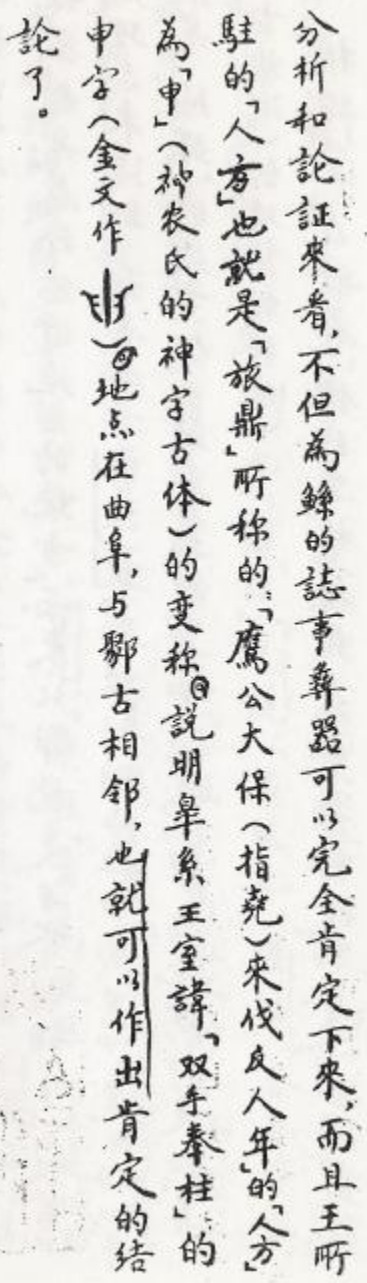 分析和論証來看，不但為鯀的誌事彝器可以完全肯定下來，而且王所
駐的「人方」也就是「旅鼎」所称的：「鷹公大保（指堯）來伐反人年」的「人方」
為「申」（神农氏的神字古体）的变称。說明皋系王室諱「双手奉柱」的
申字（金文作）地点在曲阜，与鄹古相邻，也就可以作出肯定的结
論了。